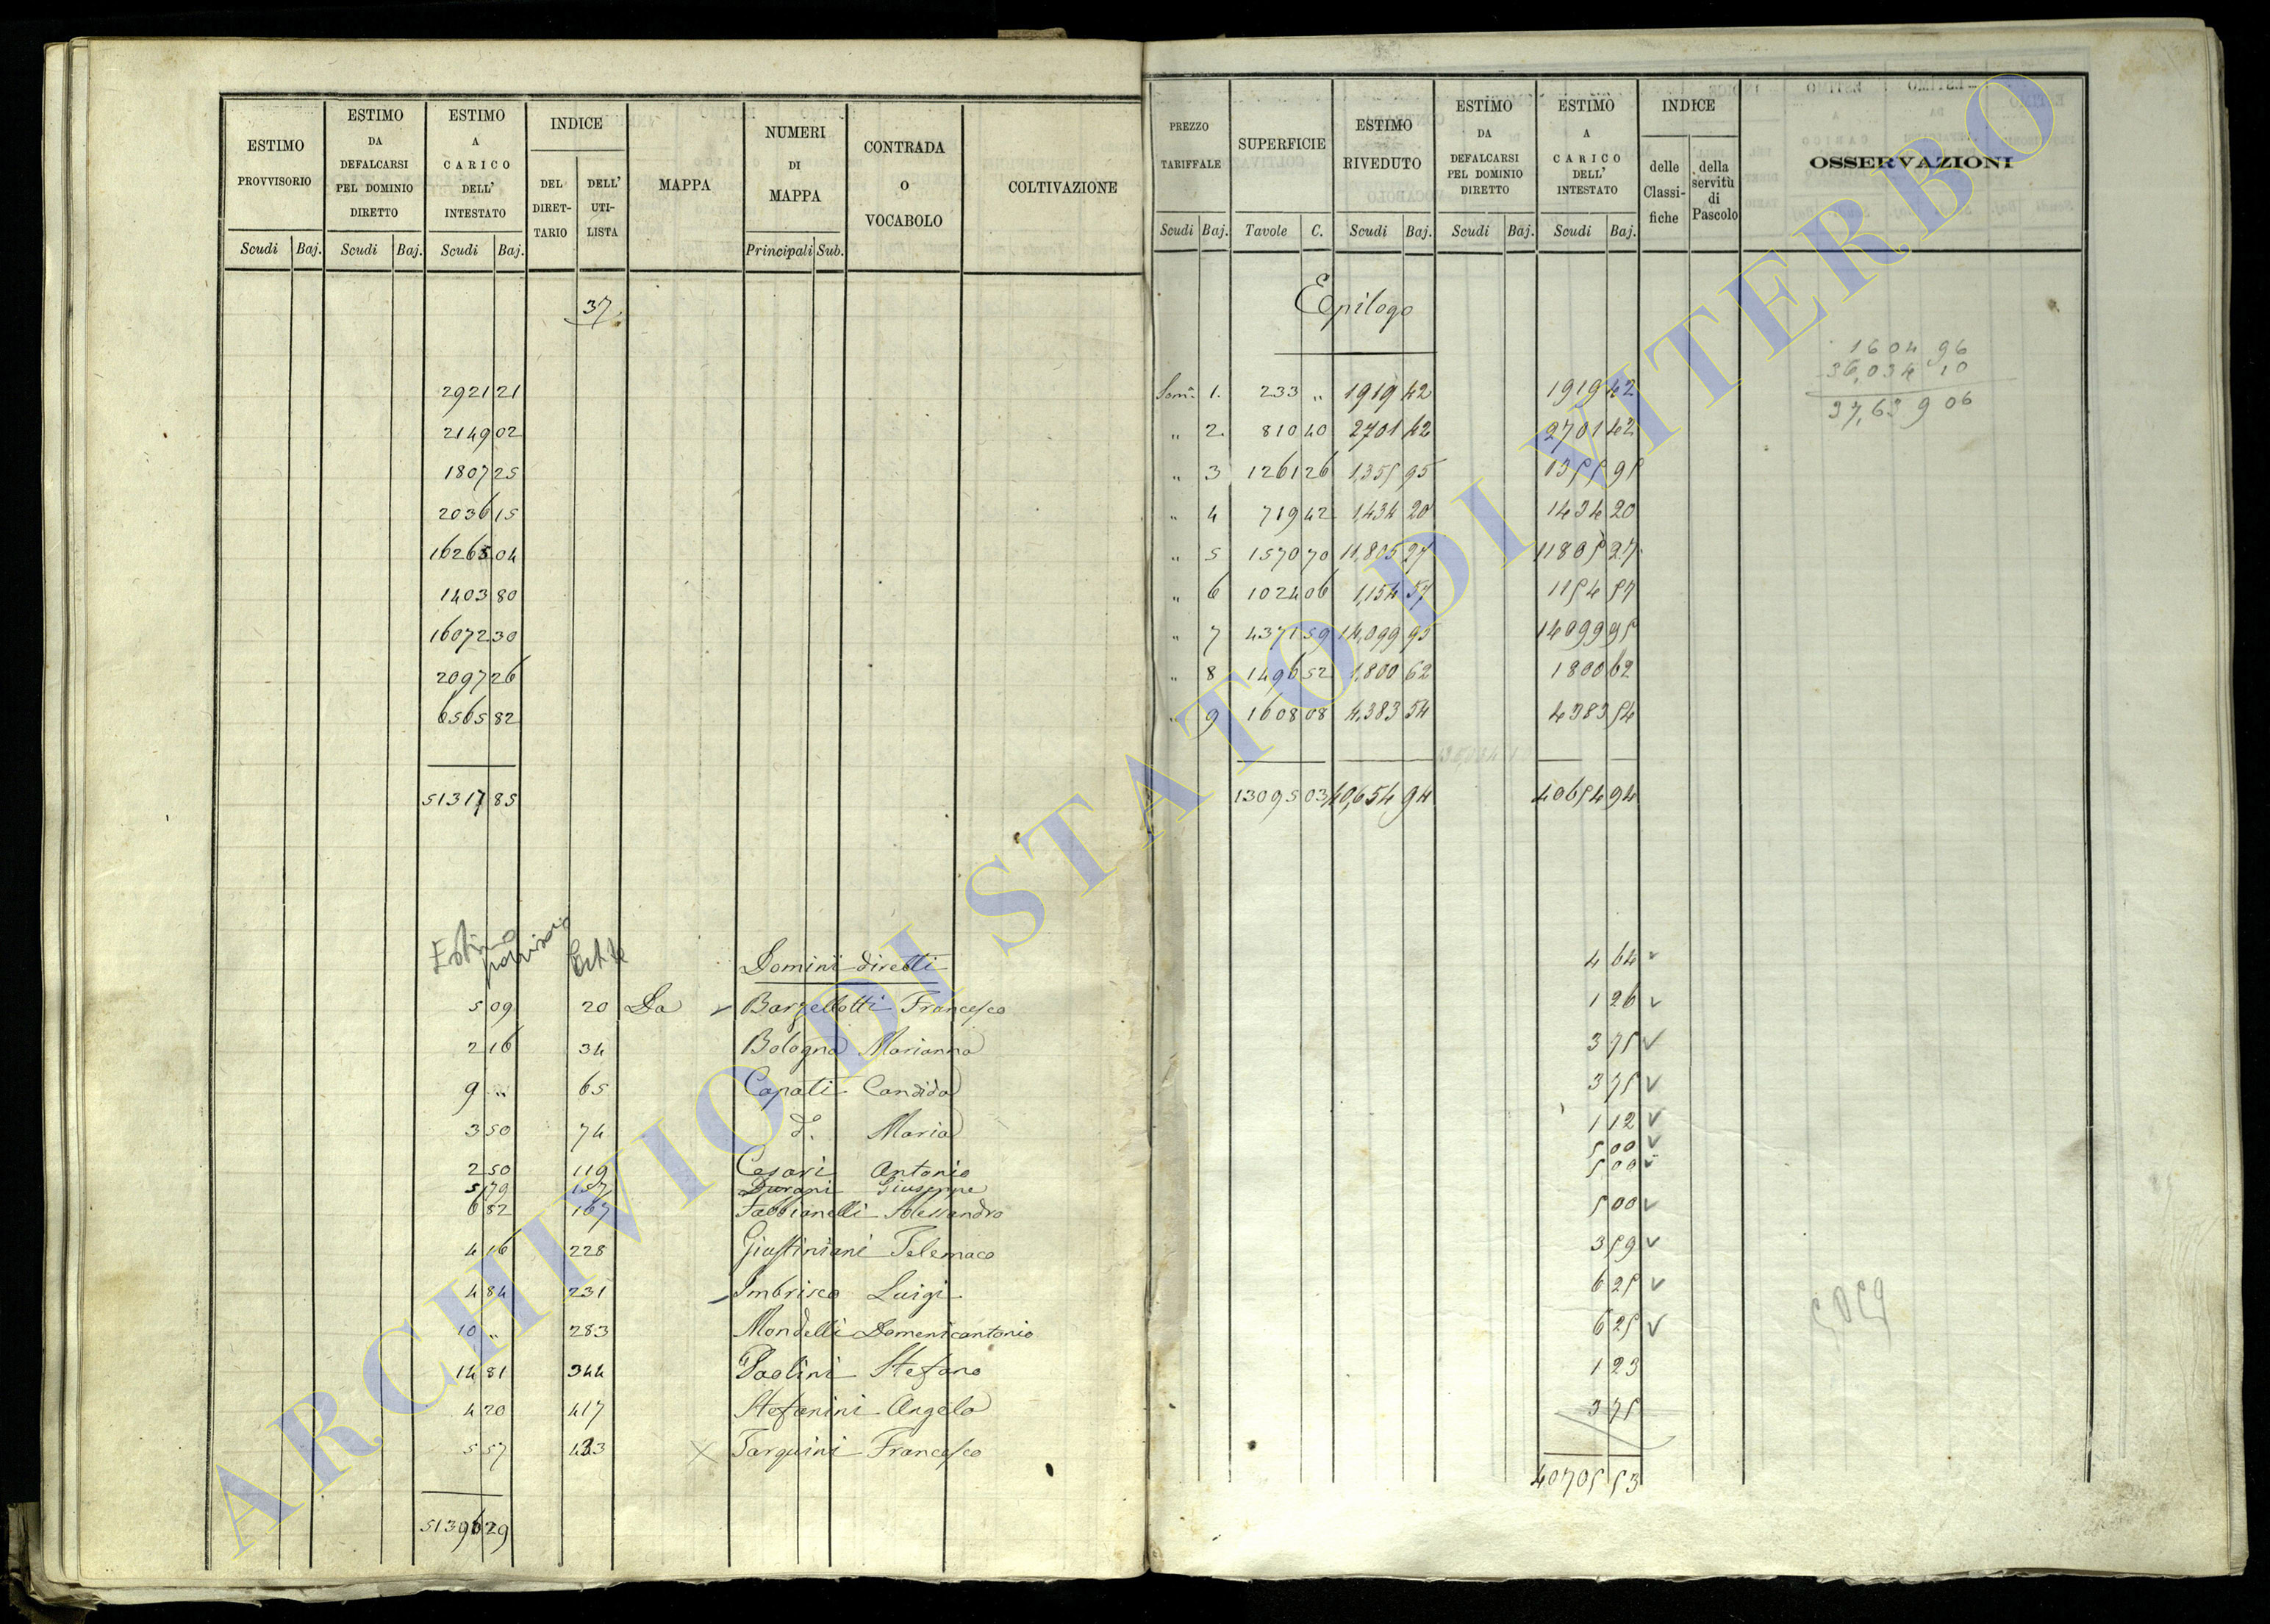 ESTIMO PROVVISORIO
ESTIMO DA DEFALCARSI PEL DOMINIO DIRETTO
ESTIMO A CARICO DELL' INTESTATO
INDICE
DEL DIRET-TARIO
DELL' UTI-LISTA
MAPPA
NUMERI DI MAPPA
CONTRADA O VOCABOLO
COLTIVAZIONE
Scudi Baj. Scudi Baj. Scudi Baj. Principali Sub.
37
2921 21
2149 02
1807 25
2036 15
16265 04
1403 80
16072 30
2097 26
6565 82
51317 85
Estimo provvisorio
Domini diretti
5 09 20 Da Barzellotti Francesco
2 16 34 Bologna Marianna
9 " 65 Capati Candida
3 50 74 d.º Maria
2 50 119 Cesari Antonio
5 79 157 Durani Giuseppe
6 82 167 Fabbianelli Alessandro
4 16 228 Giustiniani Telemaco
4 84 231 Imbrisco Luigi
10 " 283 Mondelli Domenicantonio
14 81 344 Paolini Stefano
4 20 417 Stefanini Angelo
5 57 433 Tarquini Francesco
51396 29
PREZZO TARIFFALE
SUPERFICIE
ESTIMO RIVEDUTO
ESTIMO DA DEFALCARSI PEL DOMINIO DIRETTO
ESTIMO A CARICO DELL' INTESTATO
INDICE
delle Classi-fiche
della servitù di Pascolo
OSSERVAZIONI
Scudi Baj. Tavole C. Scudi Baj. Scudi Baj. Scudi Baj.
Epilogo
1604 96
36,034 10
37,639 06
Som.ª 1. 233 " 1919 42 1919 42
" 2. 810 40 2701 42 2701 42
" 3 1261 26 1,355 95 1355 95
" 4 719 42 1,434 20 1434 20
" 5 1570 70 11,805 27 11805 27
" 6 1024 06 1,154 57 1154 57
" 7 4371 59 14,099 95 14099 95
" 8 1496 52 1,800 62 1800 62
" 9 1608 08 4,383 54 4383 54
13095 03 40,654 94 40654 94
4 64
1 26
3 75
3 75
1 12
5 00
5 00
5 00
3 59
6 25
6 25
1 23
3 75
40705 53
ARCHIVIO DI STATO DI VITERBO